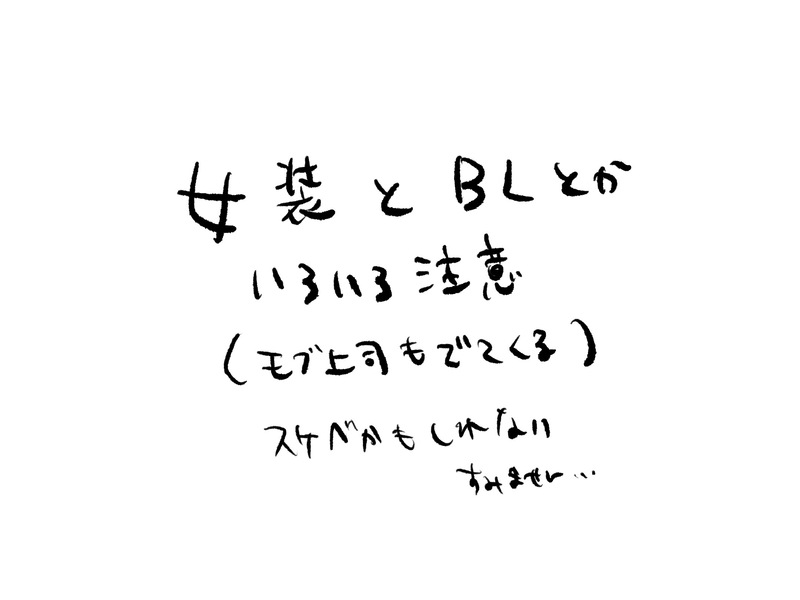 女装とBLとか
いろいろ注意
(モブ上司もでてくる)
スケベかもしれない
すみません…